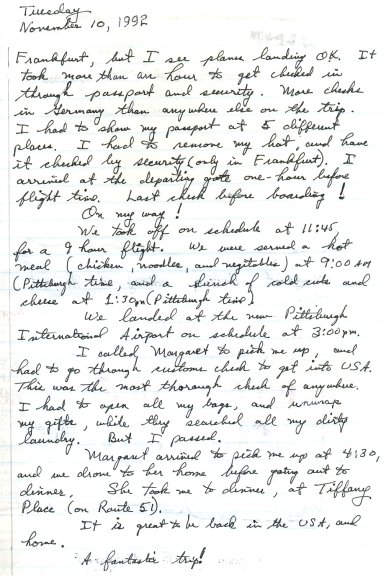 Tuesday
November 10, 1992
Frankfurt, but I see planes landing OK. It
took more than an hour to get checked in
through passport and security. More checks
in Germany than anywhere else on the trip.
I had to show my passport at 5 different
places. I had to remove my hat, and have
it checked by security (only in Frankfurt). I
arrived at the departing gate one-hour before
flight time. Last check before boarding!
On my way!
We took off on schedule at 11:45,
for a 9 hour flight. We were served a hot
meal (chicken, noodles, and vegitables) at 9:00 AM
(Pittsburgh time, and a lunch of cold cuts and
cheese at 1:30pm (Pittsburgh time)
We landed at the new Pittsburgh
International Airport on schedule at 3:00pm.
I called Margaret to pick me up, and
had to go through customs check to get into USA.
This was the most thorough check of anywhere.
I had to open all my bags, and unwrap
my gifts, while they searched all my dirty
laundry. But I passed.
Margaret arrived to pick me up at 4:30,
and we drove to her home before going out to
dinner. She took me to dinner, at Tiffany
Place (on Route 51).
It is great to be back in the USA, and
home.
A fantastic trip!